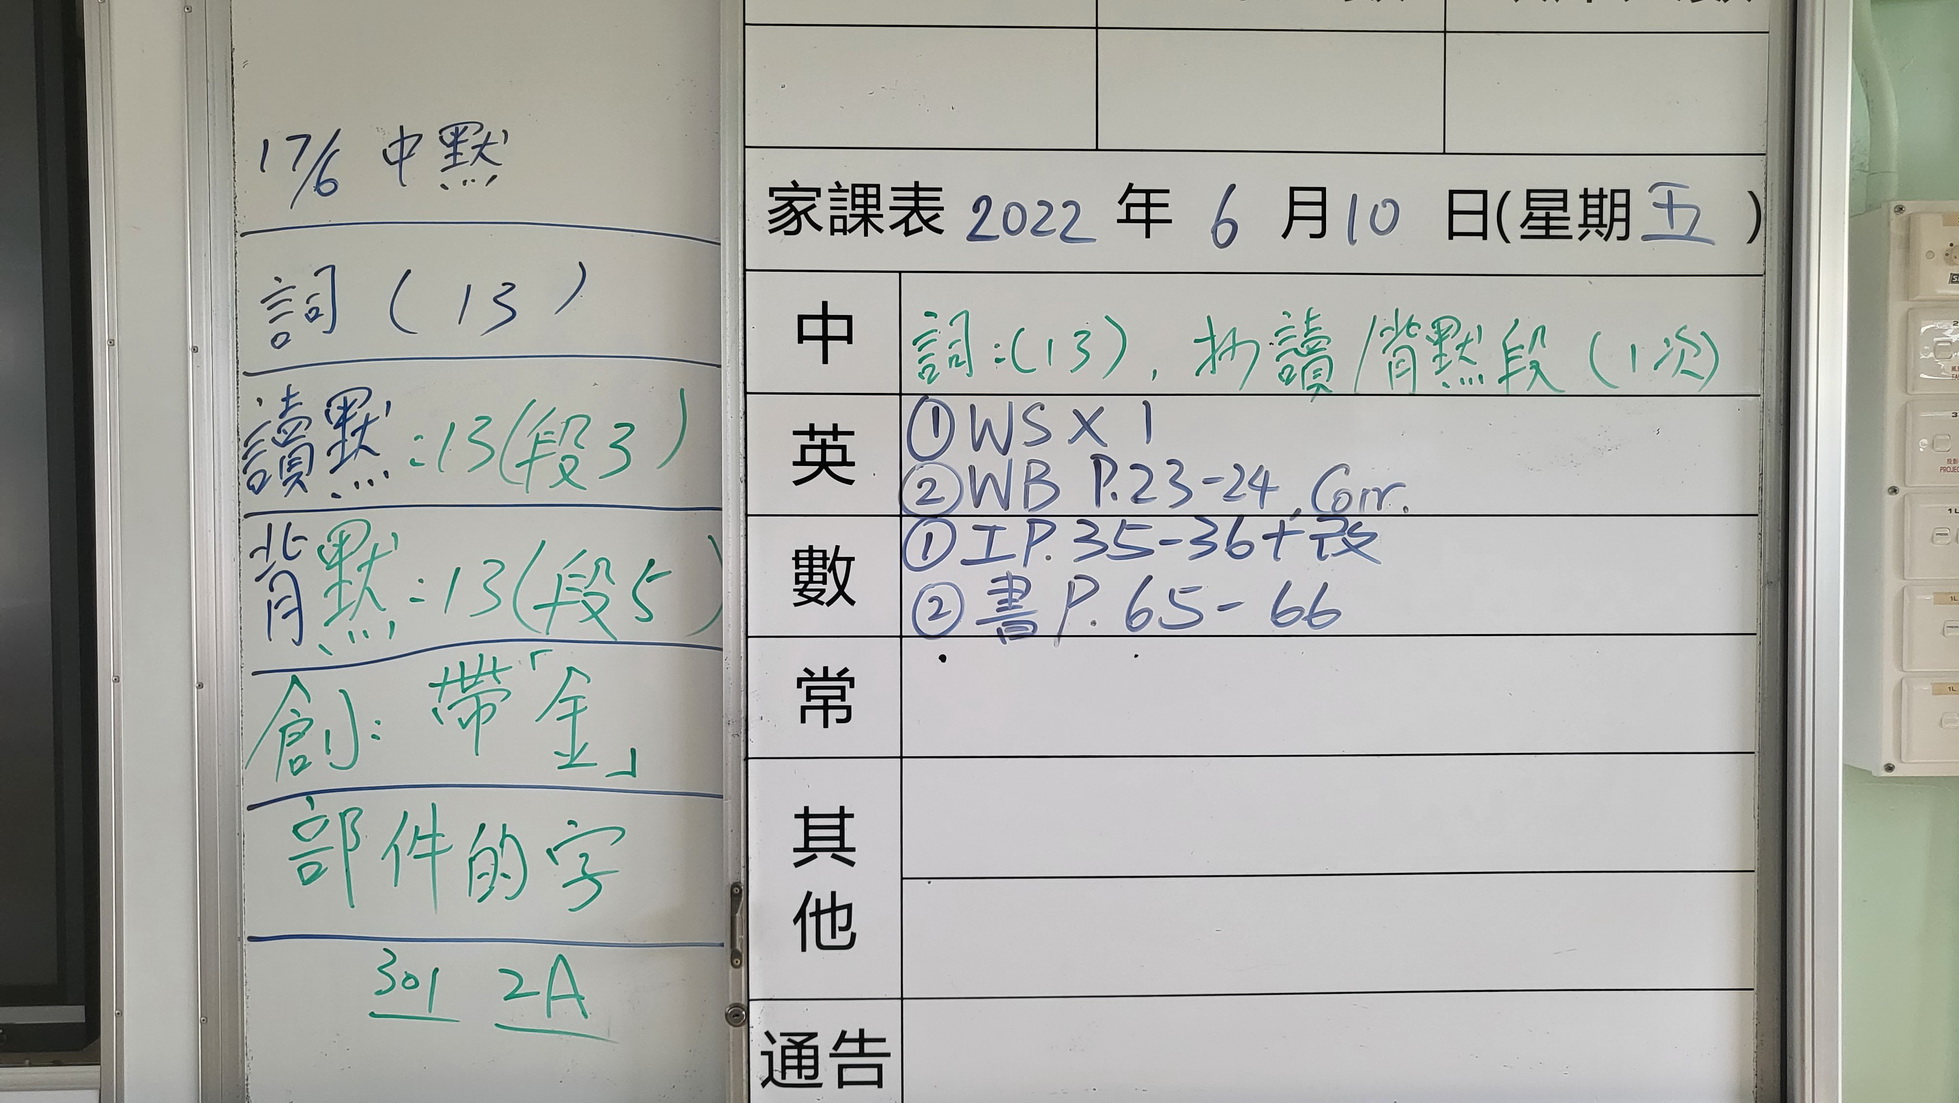 17/6 中默
詞(13)
讀默:13(段3)
背默:13(段5)
創:帶「金」
部件的字
301 2A
家課表 2022 年 6 月 10 日(星期五)
中 詞:(13), 抄讀/背默段(1次)
英 ①WS X 1
②WB P.23-24, Corr.
數 ①工P.35-36+改
②書P.65-66
常
其他
通告